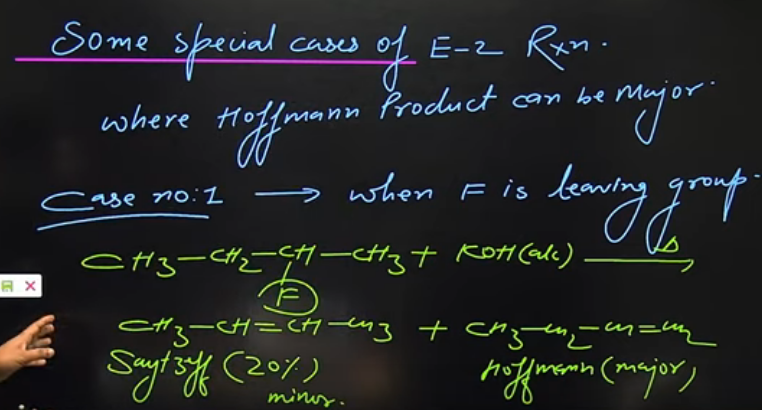 Some special cases of E-2 Rxn.
where Hoffmann Product can be Major.
Case no:1 → when F is leaving group.
CH3-CH2-CH-CH3 + KOH(alc) Δ→
F
CH3-CH=CH-CH3 + CH3-CH2-CH=CH2
Saytzeff (20%) Hoffmann (major)
minor.